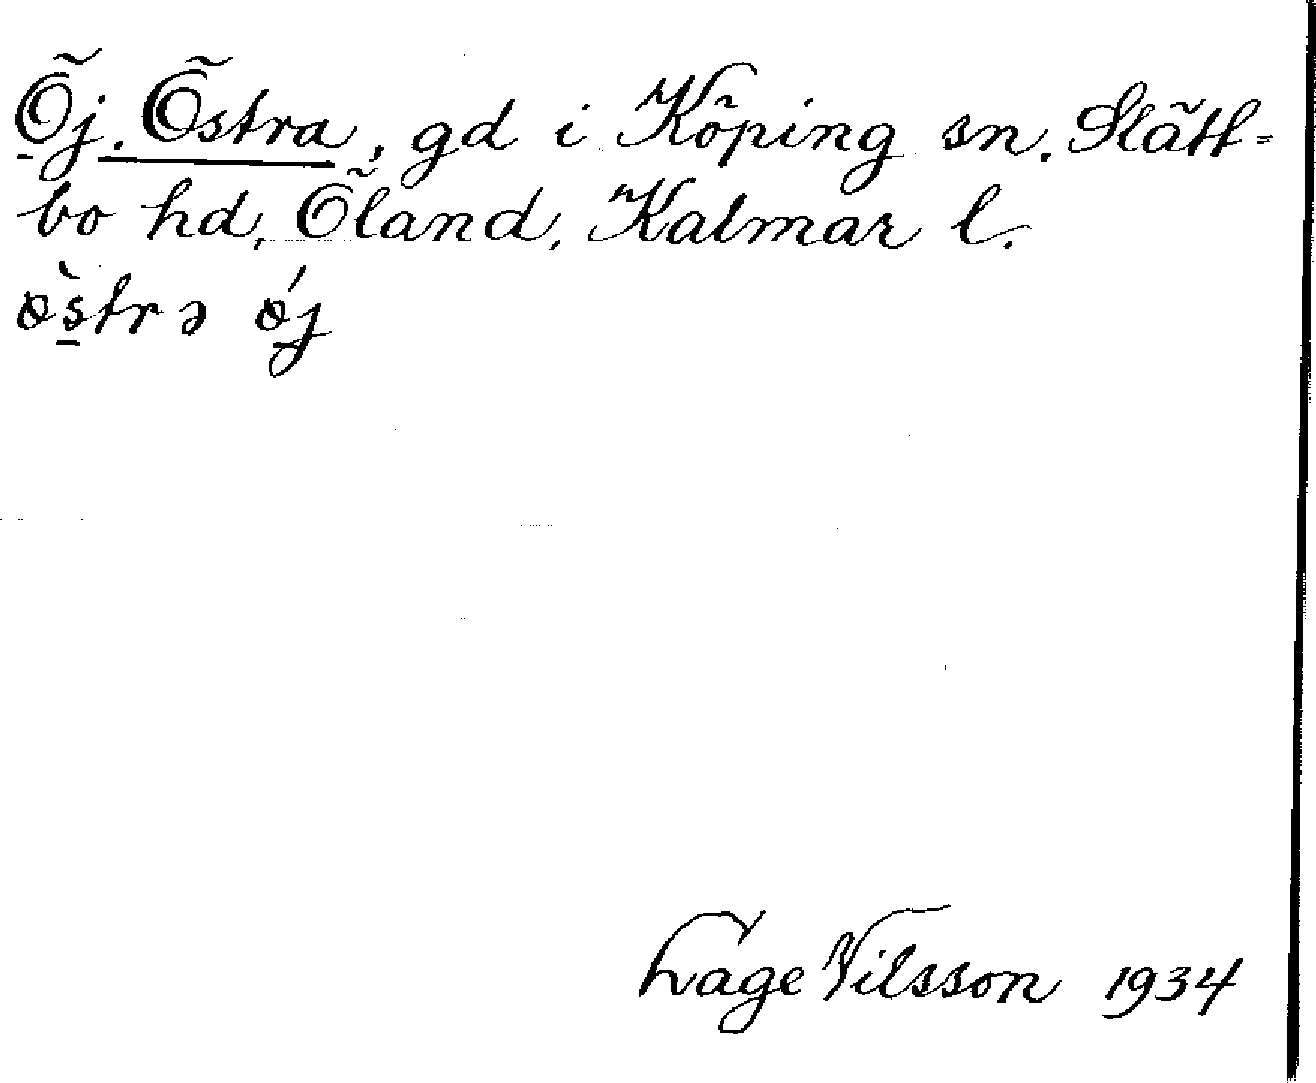 Öj. Östra, gd i Köping sn. Slätt-
bo hd, Öland, Kalmar l.
ø̀s̱trə ǿj
Lage Nilsson 1934